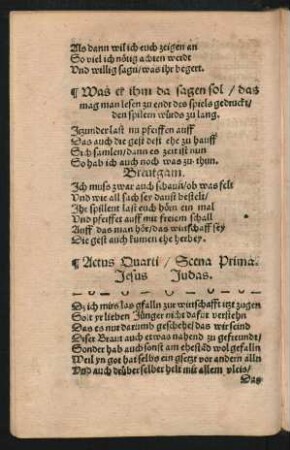 Als dann wil ich euch zeigen an
So viel ich nötig achten werdt
Und willig sagn / was ihr begert.
¶ Was er ihm da sagen sol / das
mag man lesen zu endt des spiels gedruckt /
den spilern würds zu lang.
Jtzunder last nu pfeiffen auff
Das auch die gest dest ehe zu hauff
Sich samlen / dann es zeit ist nun
So hab ich auch noch was zu thun.
Breutgam.
Ich muss zwar auch schawn / ob was felt
Und wie all sach sey daust bestelt /
Ihr spillent last euch hörn ein mal
Und pfeiffet auff mit freiem schall
Auff das man hör / das wirtschafft sey
Die gest auch kumen ehe herbey.
¶ Actus Quarti / Scena Prima.
Jesus Judas.
Dz ich mirs las gfalln zur wirtschafft itzt zugen
Solt yr lieben Jünger nicht dafür verstehn
Das es nur darumb geschehe / das wir seind
Diser Braut auch etwas nahend zu gefreundt /
Sonder hab auch sonst am ehestād wol gefalln
Weil yn got hat selbs ein gsetzt vor andern alln
Und auch drüber selber helt mit allem vleis /
Das